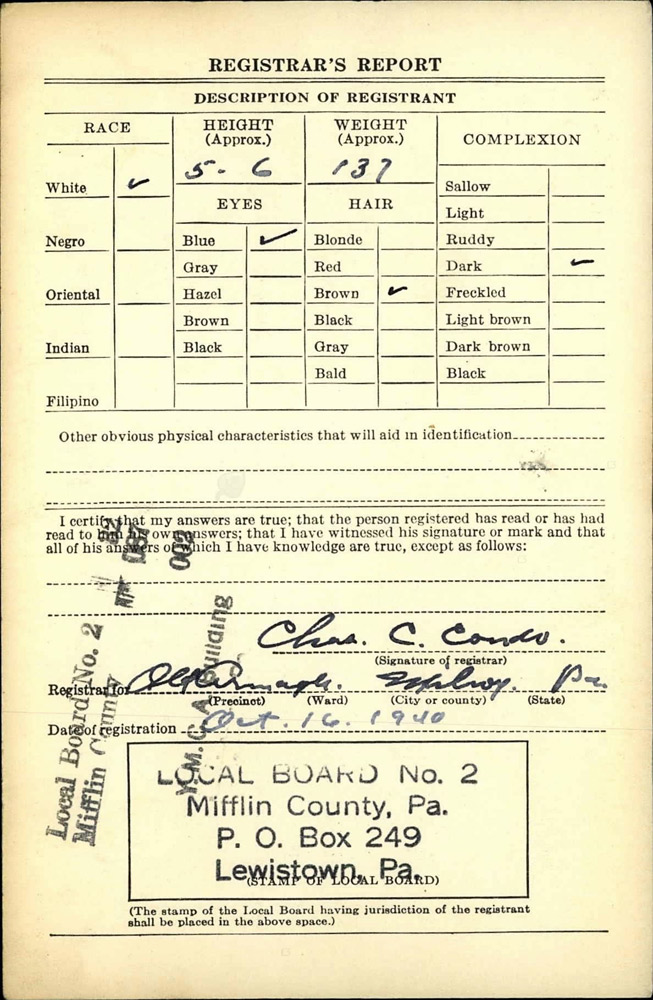 REGISTRAR'S REPORT
DESCRIPTION OF REGISTRANT
RACE
HEIGHT
(Approx.)
WEIGHT
(Approx.)
COMPLEXION
5 - 6
137
White ✓
EYES
HAIR
Sallow
Light
Negro
Blue ✓
Blonde
Ruddy
Gray
Red
Dark ✓
Oriental
Hazel
Brown ✓
Freckled
Brown
Black
Light brown
Indian
Black
Gray
Dark brown
Bald
Black
Filipino
Other obvious physical characteristics that will aid in identification
I certify that my answers are true; that the person registered has read or has had
read to him his own answers; that I have witnessed his signature or mark and that
all of his answers of which I have knowledge are true, except as follows:
Chas. C. Condo.
(Signature of registrar)
Registrar for Old Armagh. Milroy. Pa
(Precinct) (Ward) (City or county) (State)
Date of registration Oct. 16. 1940
Local Board No. 2
Mifflin County
Y.M.C.A. Building
LOCAL BOARD No. 2
Mifflin County, Pa.
P. O. Box 249
Lewistown, Pa.
(STAMP OF LOCAL BOARD)
(The stamp of the Local Board having jurisdiction of the registrant
shall be placed in the above space.)